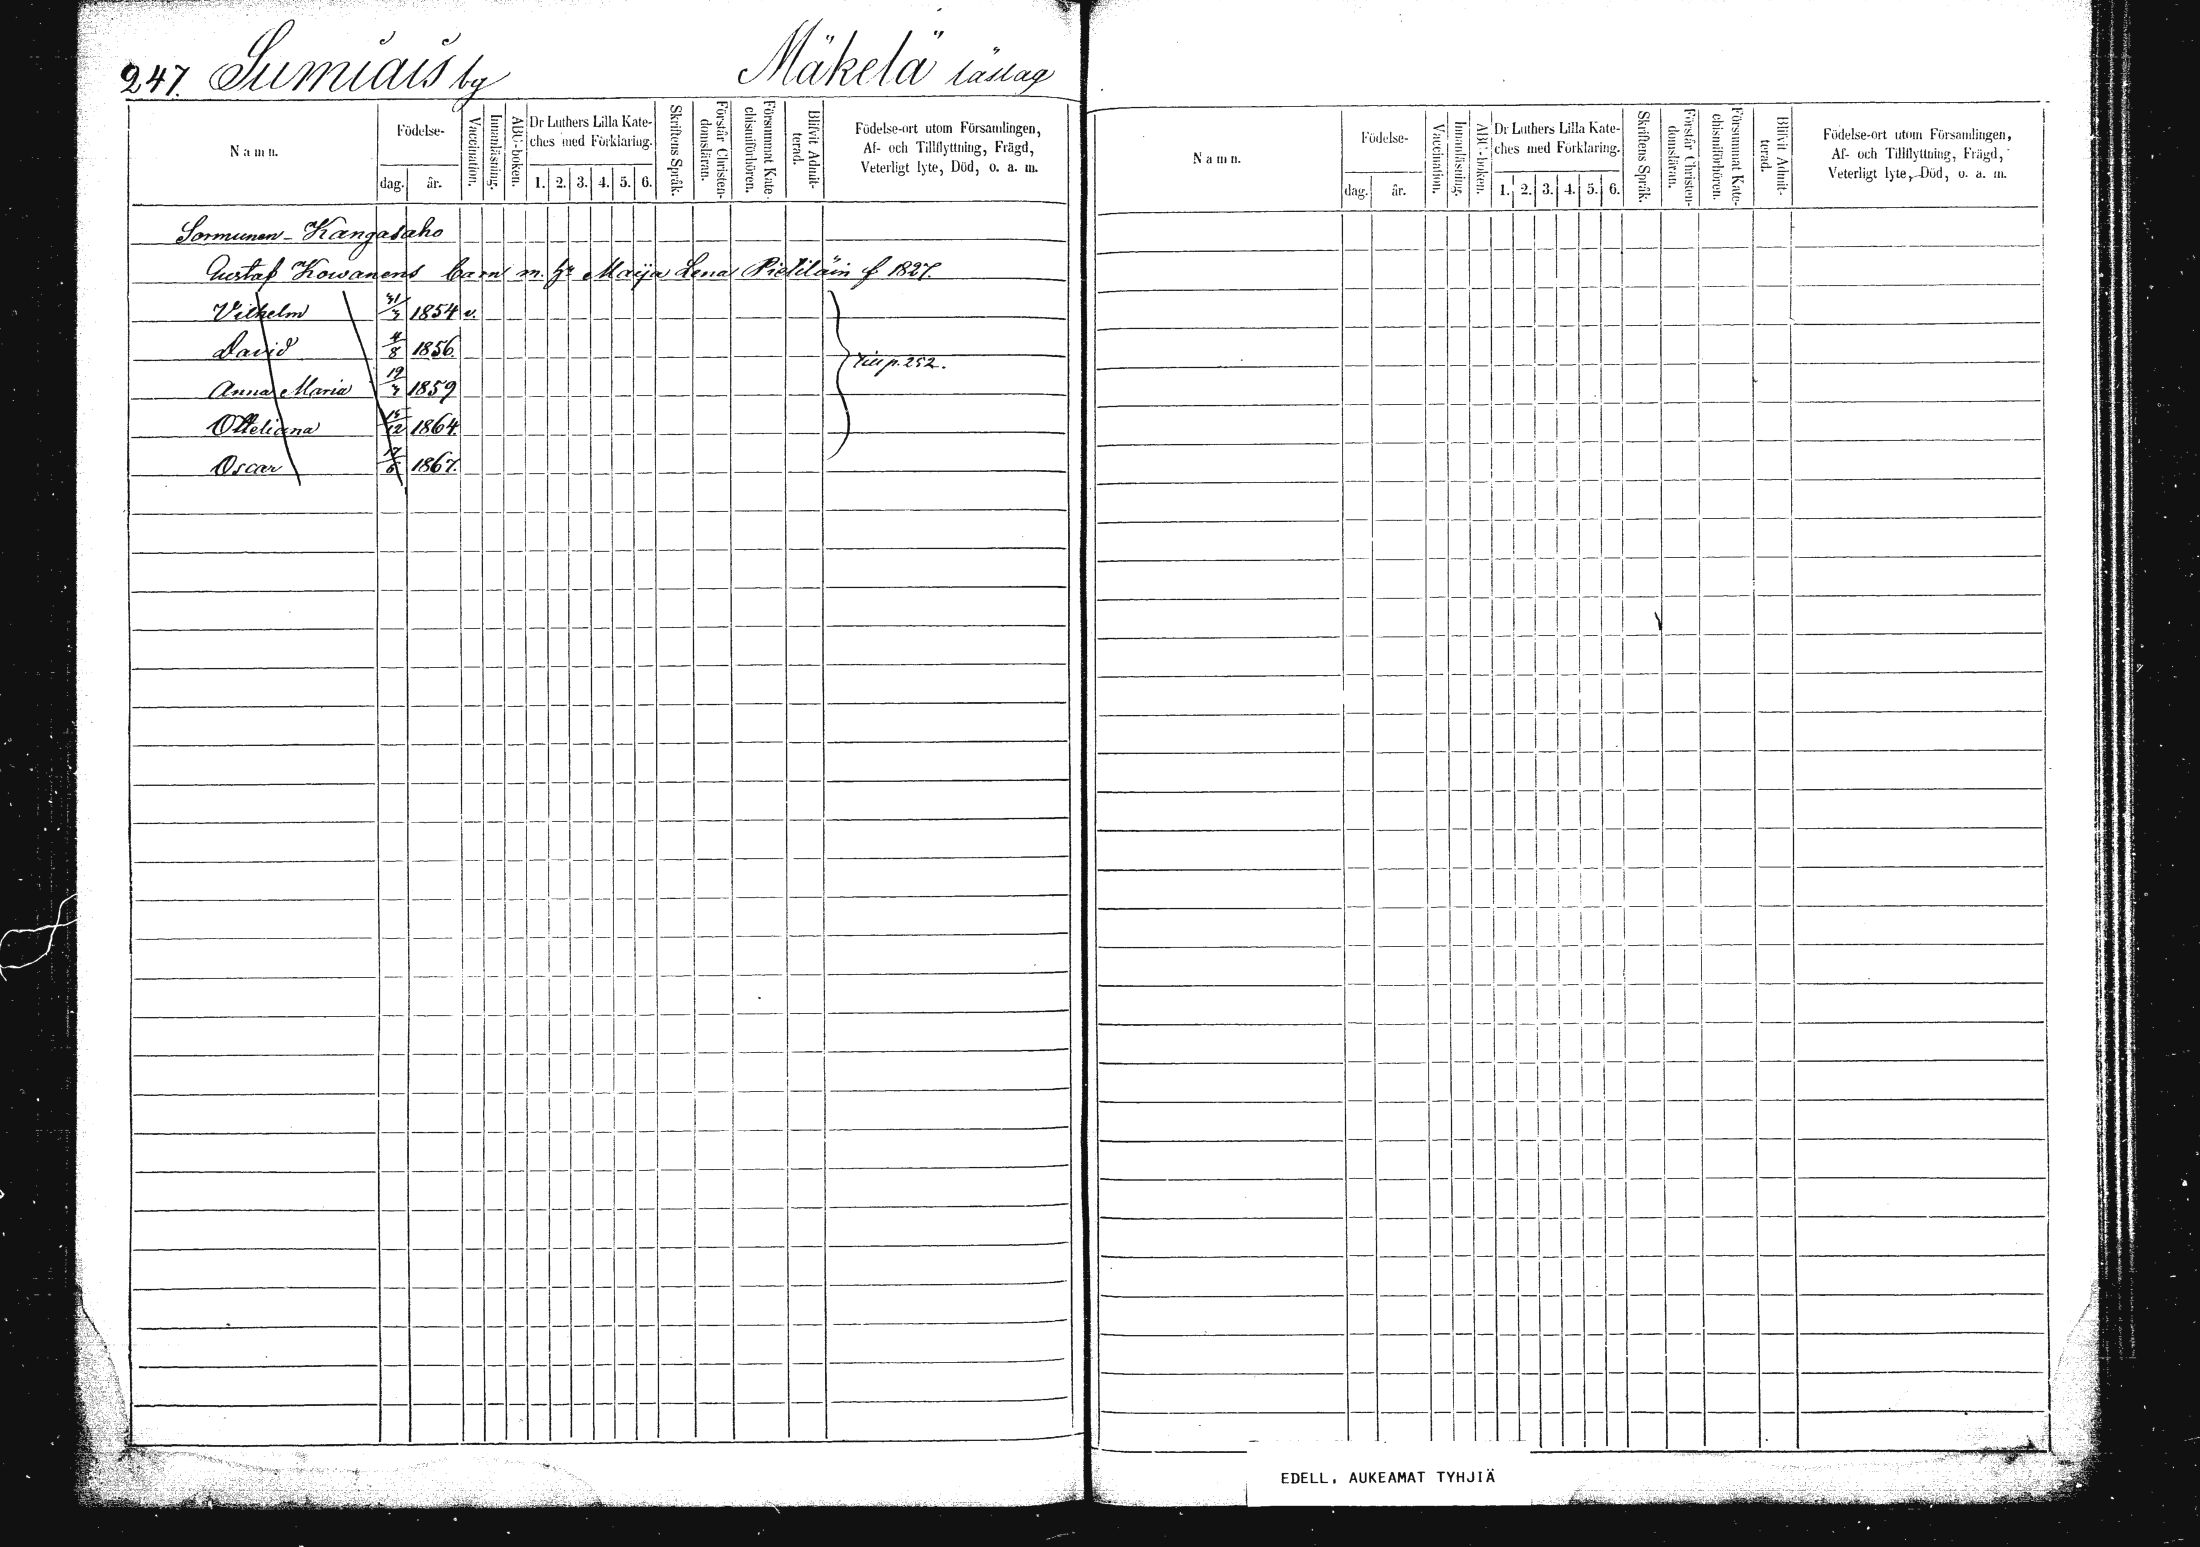 247. Sumiais by Mäkelä läslag
Namn.
Födelse-
dag. år.
Vaccination.
Innanläsning.
ABC-boken.
Dr Luthers Lilla Kate-
ches med Förklaring.
1. 2. 3. 4. 5. 6.
Skriftens Språk.
Förstår Christen-
domsläran.
Försummat Kate-
chismiförhören.
Blifvit Admit-
terad.
Födelse-ort utom Församlingen,
Af- och Tillflyttning, Frägd,
Veterligt lyte, Död, o. a. m.
Sormunen - Kangasaho
Gustaf Kowanens barn m. hu Maija Lena Pietiläin f 1827.
Vilhelm 31/3 1854 v.
David 4/8 1856.
Till p. 252.
Anna Maria 19/3 1859
Otteliana 15/12 1864.
Oscar 17/6 1867.
Namn.
Födelse-
dag. år.
Vaccination.
Innanläsning.
ABC-boken.
Dr Luthers Lilla Kate-
ches med Förklaring.
1. 2. 3. 4. 5. 6.
Skriftens Språk.
Förstår Christen-
domsläran.
Försummat Kate-
chismiförhören.
Blifvit Admit-
terad.
Födelse-ort utom Församlingen,
Af- och Tillflyttning, Frägd,
Veterligt lyte, Död, o. a. m.
EDELL. AUKEAMAT TYHJIÄ